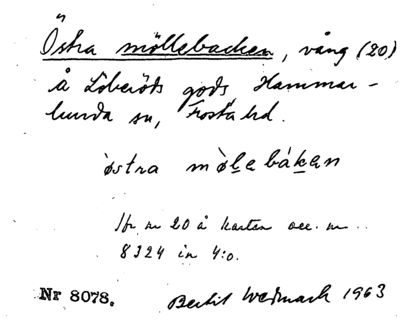 Östra möllebacken, vång (20)
å Löberöds gods Hammar-
lunda sn, Frosta hd.
östra möle bákan
Jfr nr 20 å kartan acc. nr
8324 in 4:o.
Nr 8078. Bertil Wedmark 1963